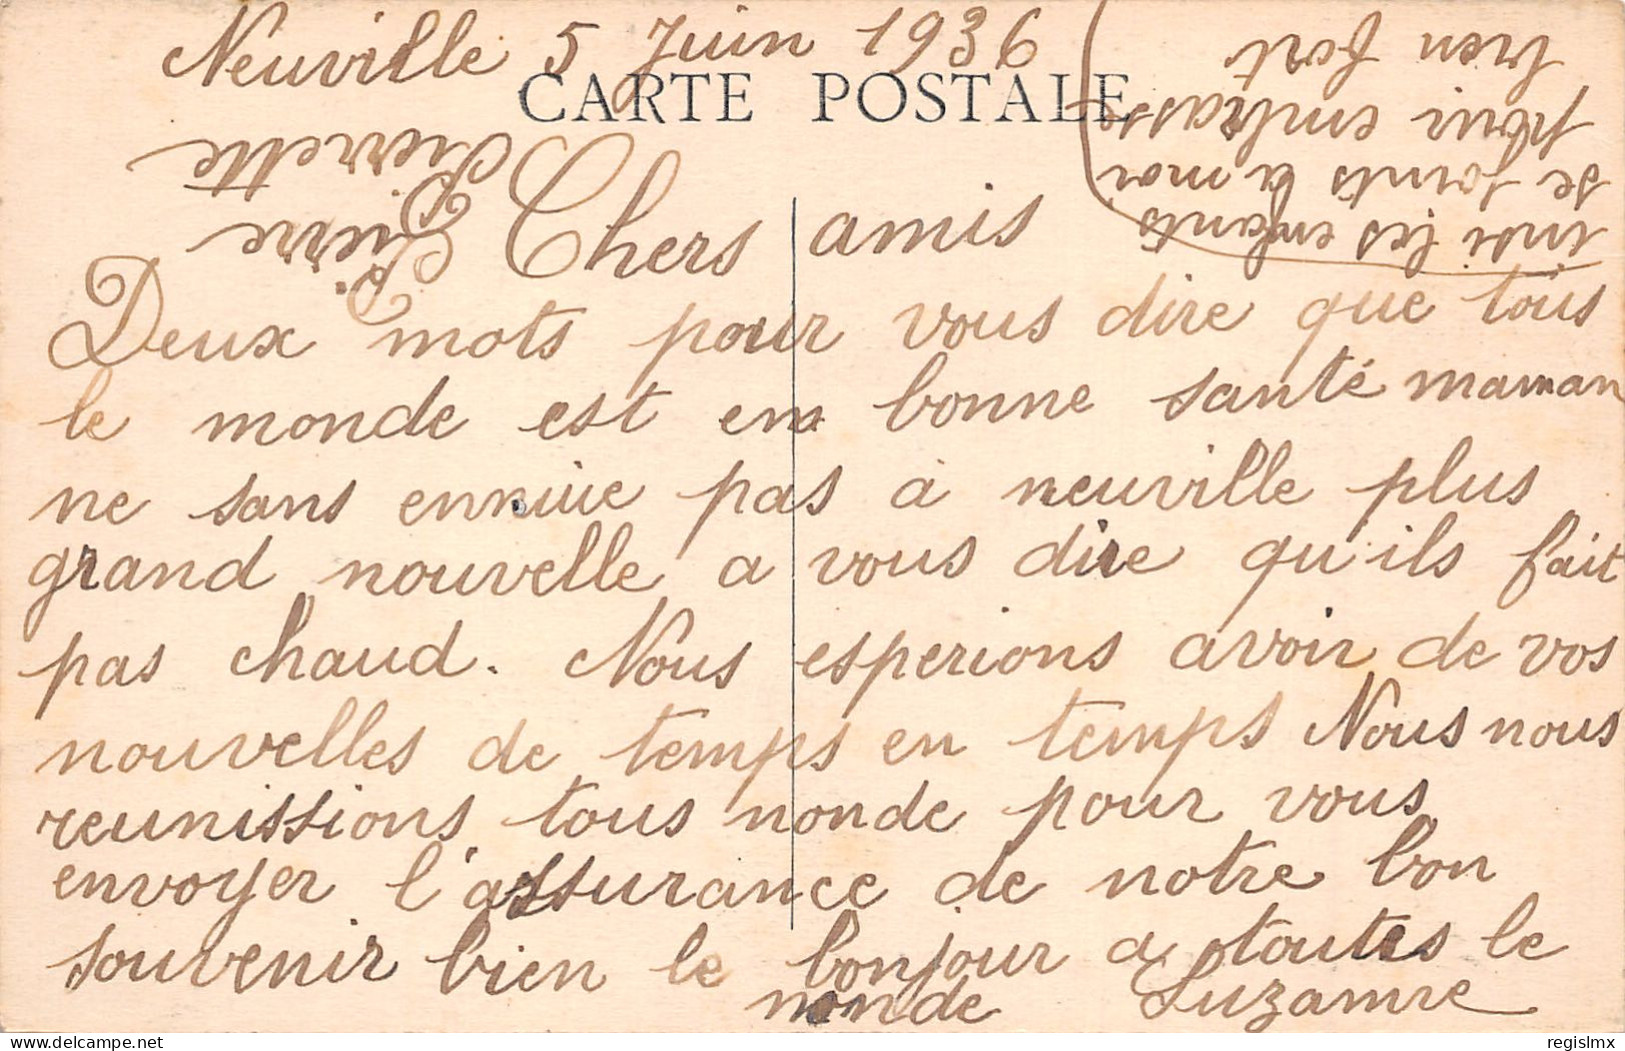 Neuville 5 Juin 1936
CARTE POSTALE
Chers amis
Deux mots pour vous dire que tous
le monde est en bonne santé maman
ne sans ennuie pas à neuville plus
grand nouvelle a vous dire qu'ils fait
pas chaud. Nous esperions avoir de vos
nouvelles de temps en temps Nous nous
reunissions tous monde pour vous
envoyer l'assurance de notre bon
souvenir bien le bonjour a toutes le
monde Suzanne
les enfants
se joints à moi
pour embrasse
bien fort
Pierre
Pierrette
regislmx